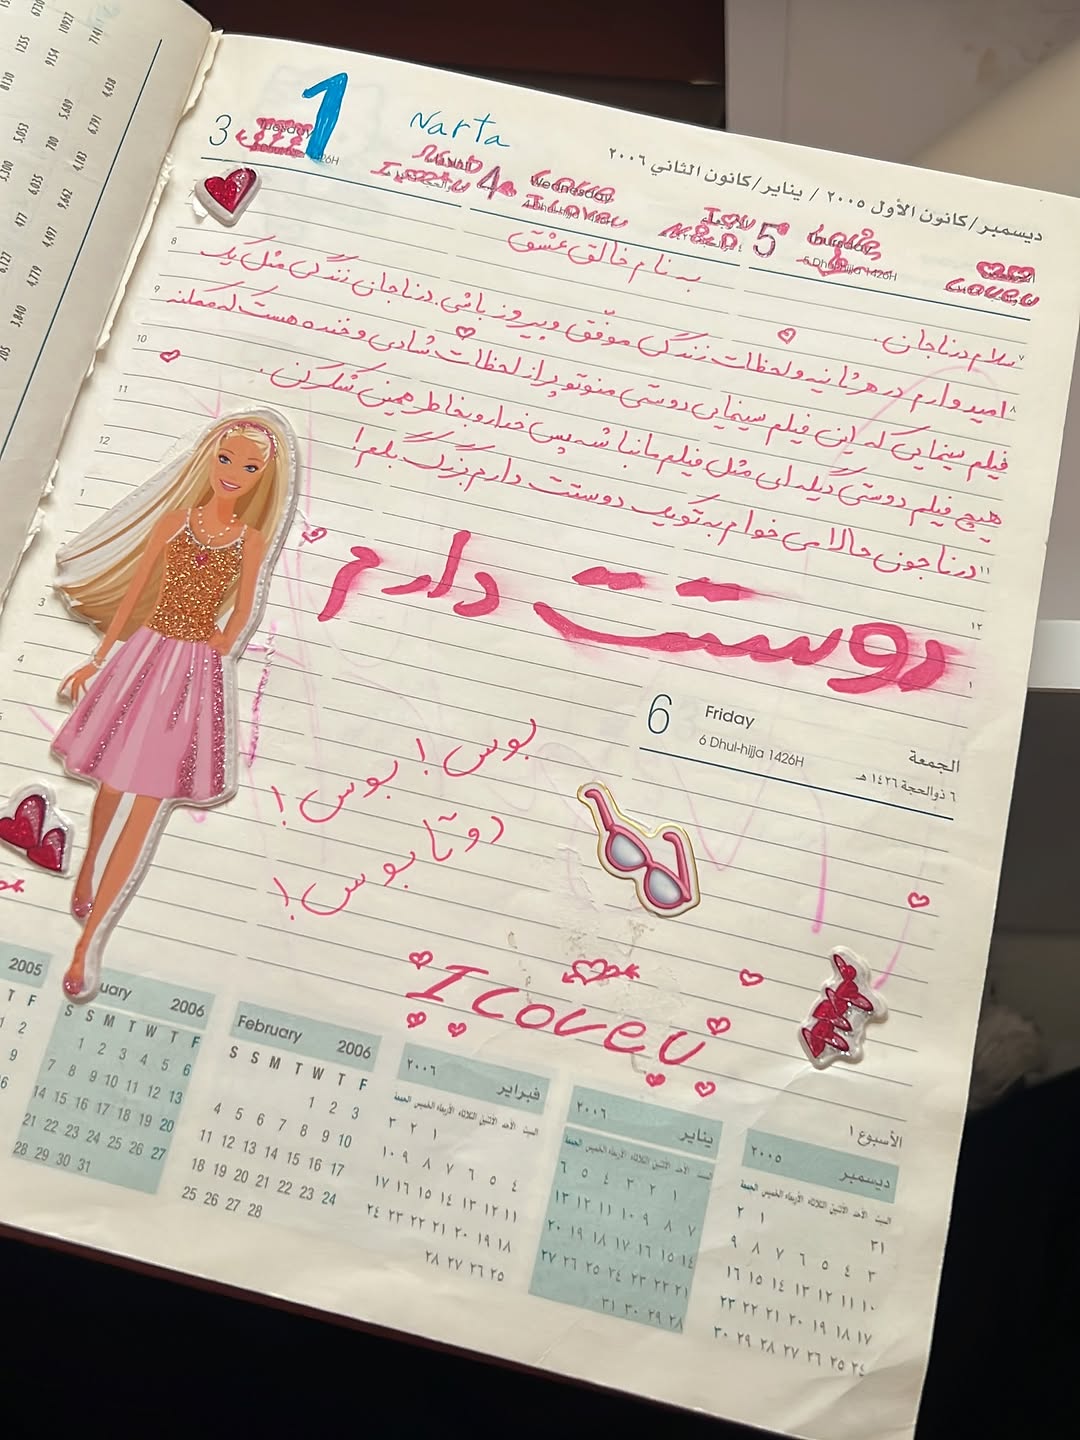 1
Narta
ديسمبر/كانون الأول ٢٠٠٥ / يناير/كانون الثاني ٢٠٠٦
3 Tuesday
4 Wednesday
5 Thursday
5 Dhul-hijja 1426H
به نام خالق عشق
سلام درناجان.
امیدوارم در هر ثانیه و لحظات زندگی موفّق و پیروز باشی. درناجان زندگی مثل یک
فیلم سینمایی که این فیلم سینمایی دوستی منوتو پر از لحظات شادی و خنده هست که ممکنه
هیچ فیلم دوستی دیگه ای مثل فیلم ما نباشه پس خدارو بخاطر همین شکر کن.
درناجون حالا می خوام به تو یک دوستت دارم بزرگ بگم!
دوستت دارم
6 Friday
6 Dhul-hijja 1426H
الجمعة
٦ ذوالحجة ١٤٢٦ هـ
بوس! بوس!
دوتا بوس!
I Love U
الأسبوع ١
2005
January 2006
S S M T W T F
1 2 3 4 5 6
7 8 9 10 11 12 13
14 15 16 17 18 19 20
21 22 23 24 25 26 27
28 29 30 31
February 2006
S S M T W T F
1 2 3
4 5 6 7 8 9 10
11 12 13 14 15 16 17
18 19 20 21 22 23 24
25 26 27 28
فبراير ٢٠٠٦
السبت الأحد الاثنين الثلاثاء الأربعاء الخميس الجمعة
١ ٢ ٣
٤ ٥ ٦ ٧ ٨ ٩ ١٠
١١ ١٢ ١٣ ١٤ ١٥ ١٦ ١٧
١٨ ١٩ ٢٠ ٢١ ٢٢ ٢٣ ٢٤
٢٥ ٢٦ ٢٧ ٢٨
يناير ٢٠٠٦
السبت الأحد الاثنين الثلاثاء الأربعاء الخميس الجمعة
١ ٢ ٣ ٤ ٥ ٦
٧ ٨ ٩ ١٠ ١١ ١٢ ١٣
١٤ ١٥ ١٦ ١٧ ١٨ ١٩ ٢٠
٢١ ٢٢ ٢٣ ٢٤ ٢٥ ٢٦ ٢٧
٢٨ ٢٩ ٣٠ ٣١
ديسمبر ٢٠٠٥
السبت الأحد الاثنين الثلاثاء الأربعاء الخميس الجمعة
٣١ ١ ٢
٣ ٤ ٥ ٦ ٧ ٨ ٩
١٠ ١١ ١٢ ١٣ ١٤ ١٥ ١٦
١٧ ١٨ ١٩ ٢٠ ٢١ ٢٢ ٢٣
٢٤ ٢٥ ٢٦ ٢٧ ٢٨ ٢٩ ٣٠